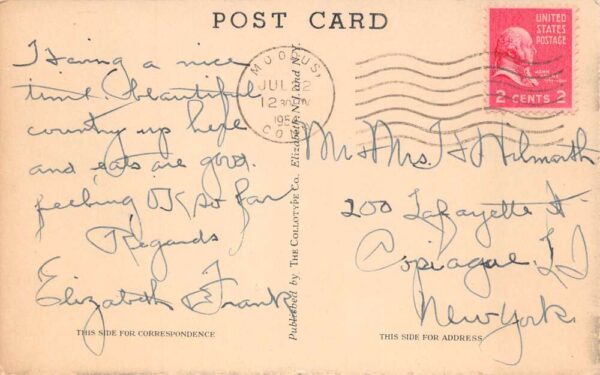 POST CARD
Having a nice
time. beautiful
country up here
and eats are good.
feeling OK so far
Regards
Elizabeth & Frank
THIS SIDE FOR CORRESPONDENCE
Published by THE COLLOTYPE CO., Elizabeth, N.J. and N.Y.
MOODUS,
JUL 22
12 30 PM
CONN
UNITED
STATES
POSTAGE
2 CENTS 2
Mr & Mrs. H Wilmarth
200 Lafayette St
Copiague L I
New York.
THIS SIDE FOR ADDRESS